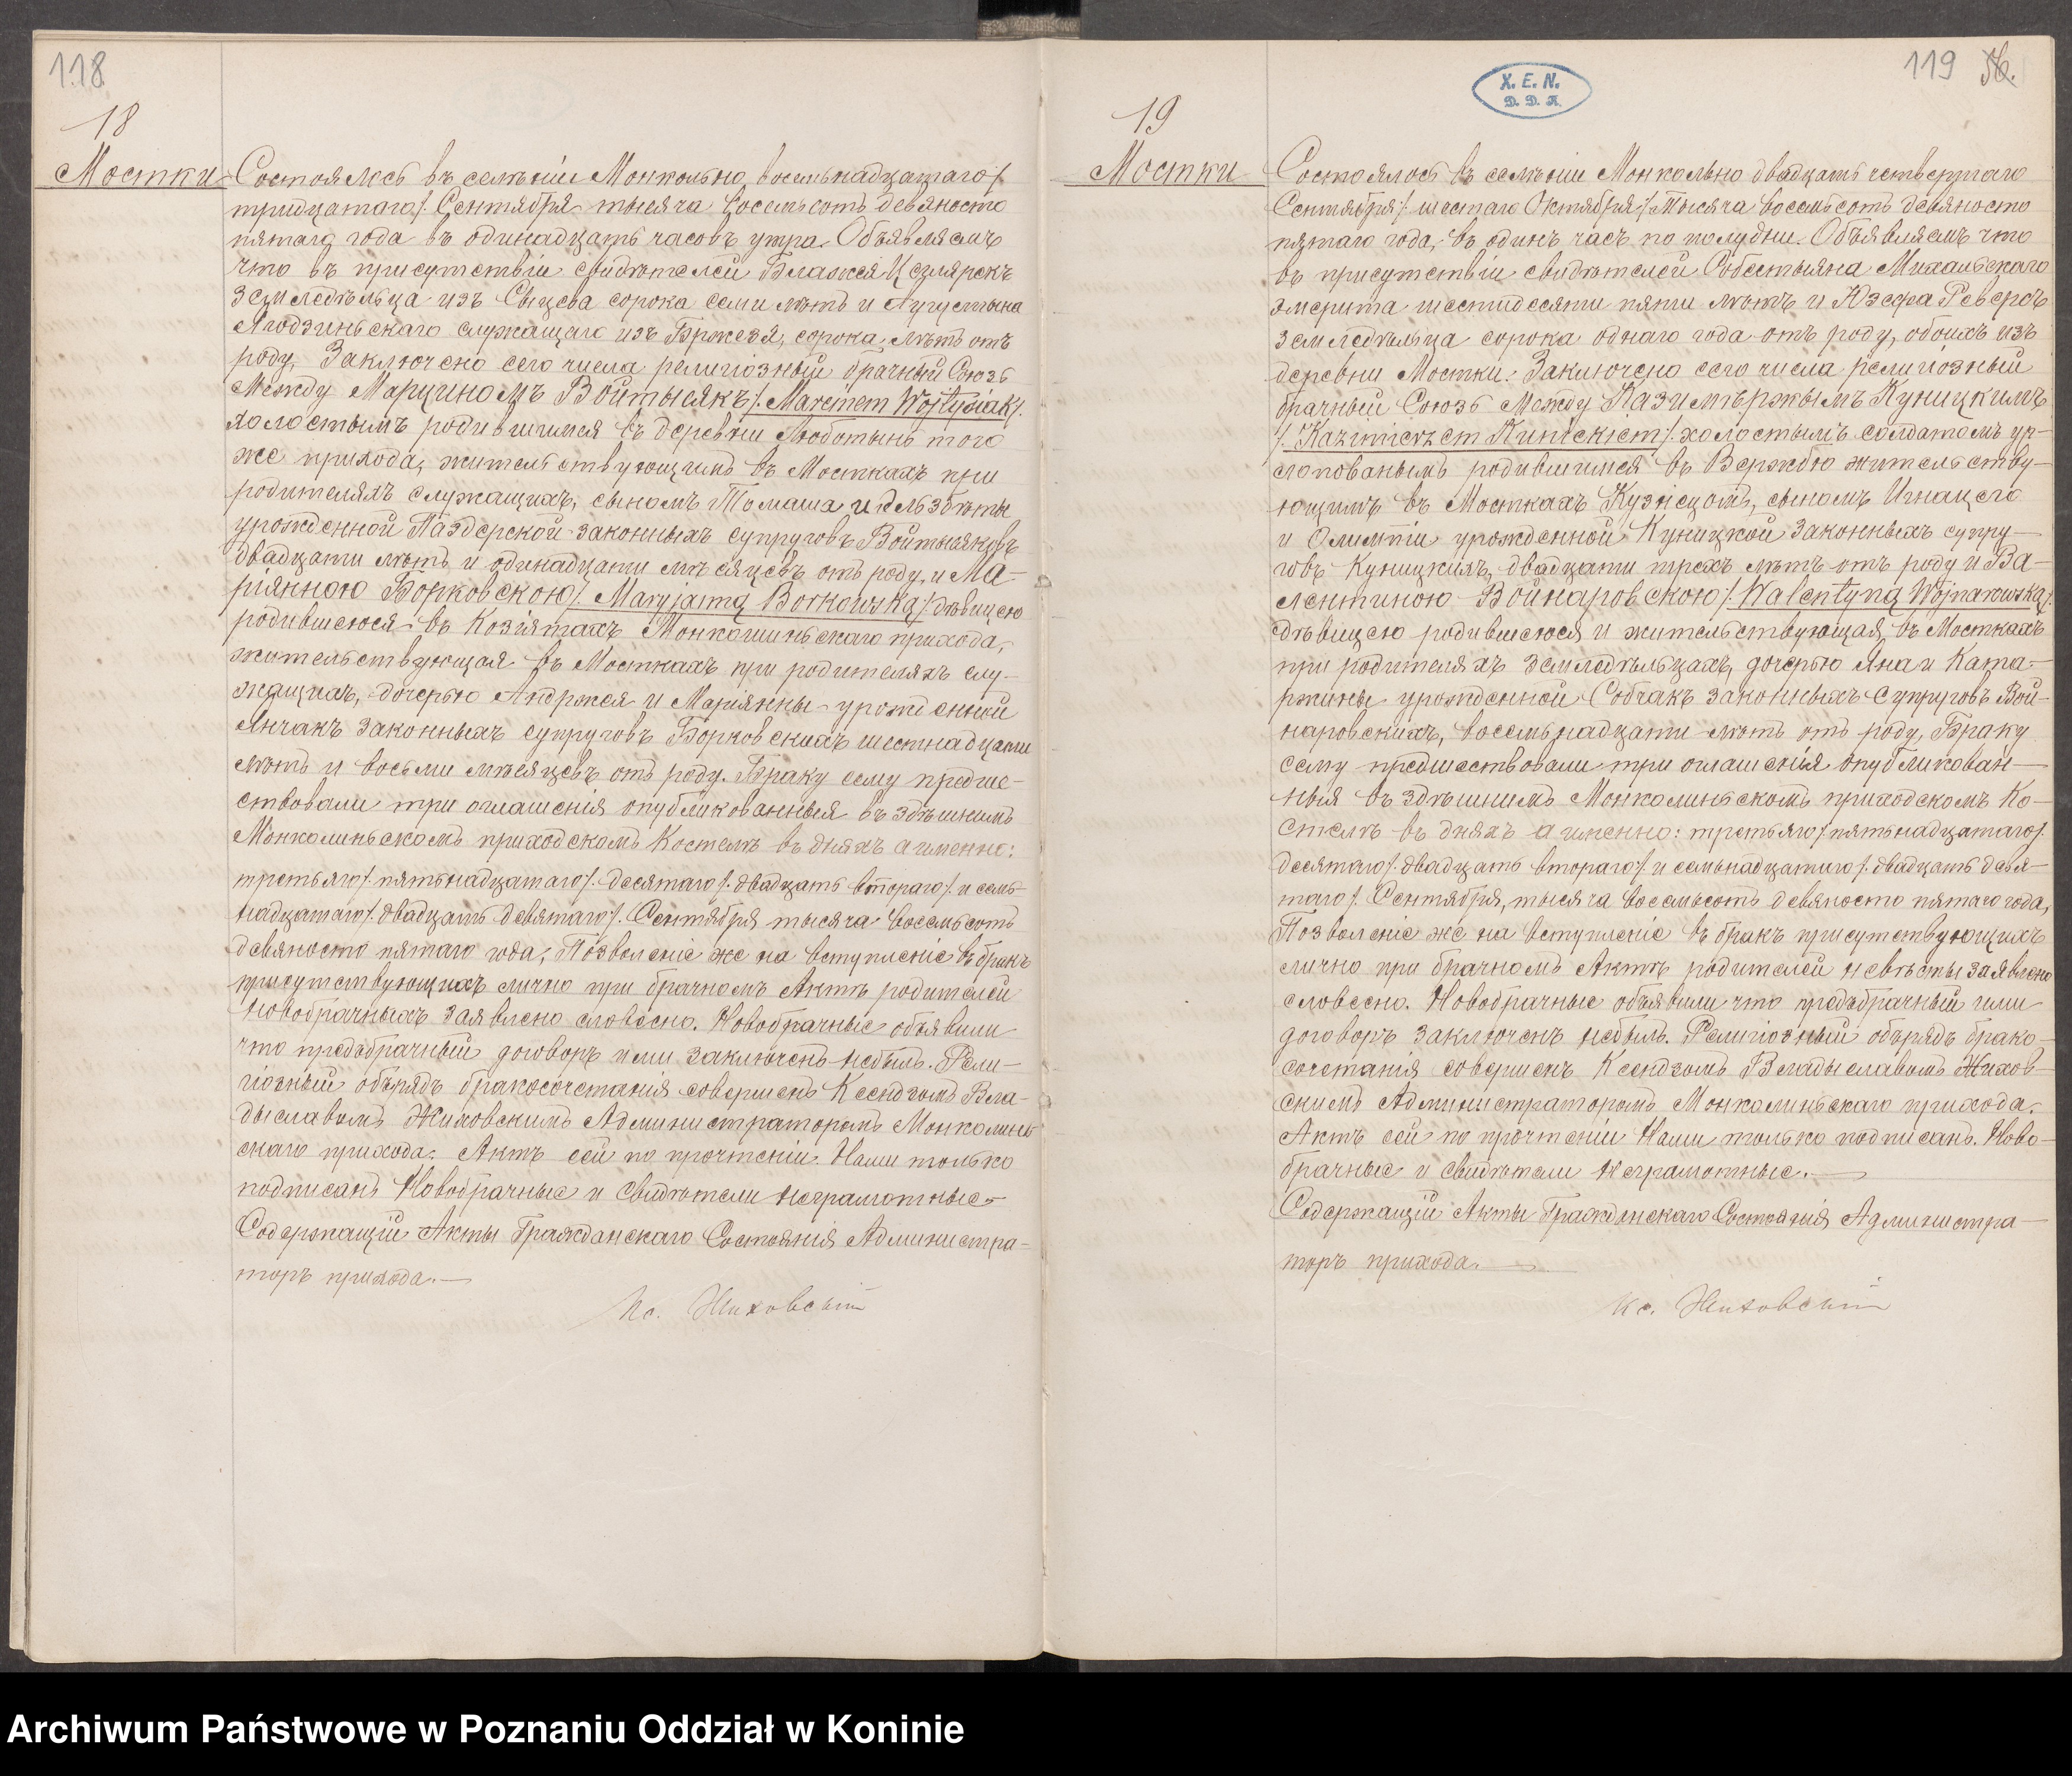 118
18
Мостки
Состоялось въ селеніи Монкольно восемьнадцатаго /.
тридцатаго /. Сентября тысяча восемьсотъ девяносто
пятаго года въ одинадцать часовъ утра. Объявляемъ
что въ присутствіи свидѣтелей Блажея Цеглярекъ
земледѣльца изъ Сыцева сорока семи лѣтъ и Аугустына
Ягодзиньскаго служащаго изъ Бржезя, сорока лѣтъ отъ
роду, Заключено сего числа религіозный брачный Союзъ
Между Марциномъ Войтысякъ /. Marcinem Wojtysiak /.
холостымъ родившимся въ деревни Люботынь того
же прихода, жительствующимъ въ Мосткахъ при
родителяхъ служащихъ, сыномъ Томаша и Эльзбѣты
урожденной Паздерской законныхъ супруговъ Войтысяковъ
двадцати лѣтъ и одинадцати мѣсяцевъ отъ роду, и Ма-
ріянною Борковскою /. Maryjanną Borkowską /. дѣвицею
родившеюся въ Козіятахъ Монколиньскаго прихода,
жительствующая въ Мосткахъ при родителяхъ слу-
жащихъ, дочерью Андржея и Маріянны урожденной
Янчакъ законныхъ супруговъ Борковскихъ шестнадцати
лѣтъ и восьми мѣсяцевъ отъ роду. Браку сему предше-
ствовали три оглашенія опубликованныя въ здѣшнимъ
Монколиньскомъ приходскомъ Костелѣ въ дняхъ а именно:
третьяго /. пятьнадцатаго /. десятаго /. двадцать втораго /. и семь-
надцатаго /. двадцать девятаго /. Сентября тысяча восемьсотъ
девяносто пятаго года, Позволеніе же на вступленіе въ бракъ
присутствующихъ лично при брачномъ Актѣ родителей
новобрачныхъ заявлено словесно. Новобрачные объявили
что предъбрачный договоръ ими заключенъ небылъ. Рели-
гіозный обърядъ бракосочетанія совершенъ Ксендзомъ Вла-
дыславомъ Жиховскимъ Администраторомъ Монколинь
скаго прихода. Актъ сей по прочтеніи Нами только
подписанъ Новобрачные и Свидѣтели неграмотные.
Содержащій Акты Гражданскаго Состоянія Администра-
торъ прихода.
Кс. Жиховскій
119
X. E. N.
Д. Д. П.
19
Мостки
Состоялось въ селѣніи Монкольно двадцать четвертаго
Сентября /. шестаго Октября /. Тысяча восемьсотъ девяносто
пятаго года, въ одинъ часъ по полудни. Объявляемъ что
въ присутствіи свидѣтелей Собестыяна Михальскаго
эмерита шестидесяти пяти лѣтъ и Юзефа Реверсъ
земледѣльца сорока однаго года отъ роду, обоихъ изъ
деревни Мостки. Заключено сего числа религіозный
брачный Союзъ Между Казимѣржымъ Куницкимъ
/. Kazimierzem Kunickiem /. холостымъ солдатомъ ур-
слопованымъ родившимся въ Вержбю жительству-
ющимъ въ Мосткахъ Кузнецомъ, сыномъ Игнацего
и Олимпіи урожденной Куницкой законныхъ супру-
говъ Куницкихъ, двадцати трехъ лѣтъ отъ роду и Ва-
лентиною Войнаровскою /. Walentyną Wojnarowską /.
дѣвицею родившеюся и жительствующая въ Мосткахъ
при родителяхъ земледѣльцахъ, дочерью Яна и Ката-
ржины урожденной Собчакъ законныхъ Супруговъ Вой-
наровскихъ, восемьнадцати лѣтъ отъ роду, Браку
сему предшествовали три оглашенія опубликован-
ныя въ здѣшнимъ Монколиньскомъ приходскомъ Ко-
стелѣ въ дняхъ а именно: третьяго /. пятьнадцатаго /.
десятаго /. двадцать втораго /. и семьнадцатаго /. двадцать девя-
таго /. Сентября, тысяча восемьсотъ девяносто пятаго года,
Позволеніе же на вступленіе въ бракъ присутствующихъ
лично при брачномъ Актѣ родителей невѣсты заявлено
словесно. Новобрачные объявили что предъбрачный ими
договоръ заключенъ небылъ. Религіозный обърядъ брако-
сочетанія совершенъ Ксендзомъ Владыславомъ Жихов-
скимъ Администраторомъ Монколиньскаго прихода.
Актъ сей по прочтеніи Нами только подписанъ. Ново-
брачные и Свидѣтели неграмотные.
Содержащій Акты Гражданскаго Состоянія Администра-
торъ прихода.
Кс. Жиховскій
Archiwum Państwowe w Poznaniu Oddział w Koninie